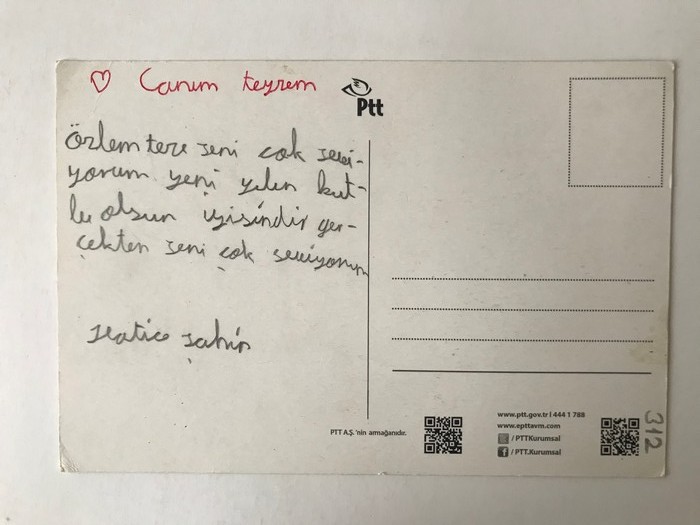 ♡ Canım teyzem
Ptt
Özlem teze seni çok sevi-
yorum yeni yılın kut-
lu olsun iyisindir ger-
çekten seni çok seviyorum
Hatice Şahin
www.ptt.gov.tr I 444 1 788
www.epttavm.com
/ PTTKurumsal
/ PTT.Kurumsal
PTT A.Ş.'nin armağanıdır.
312